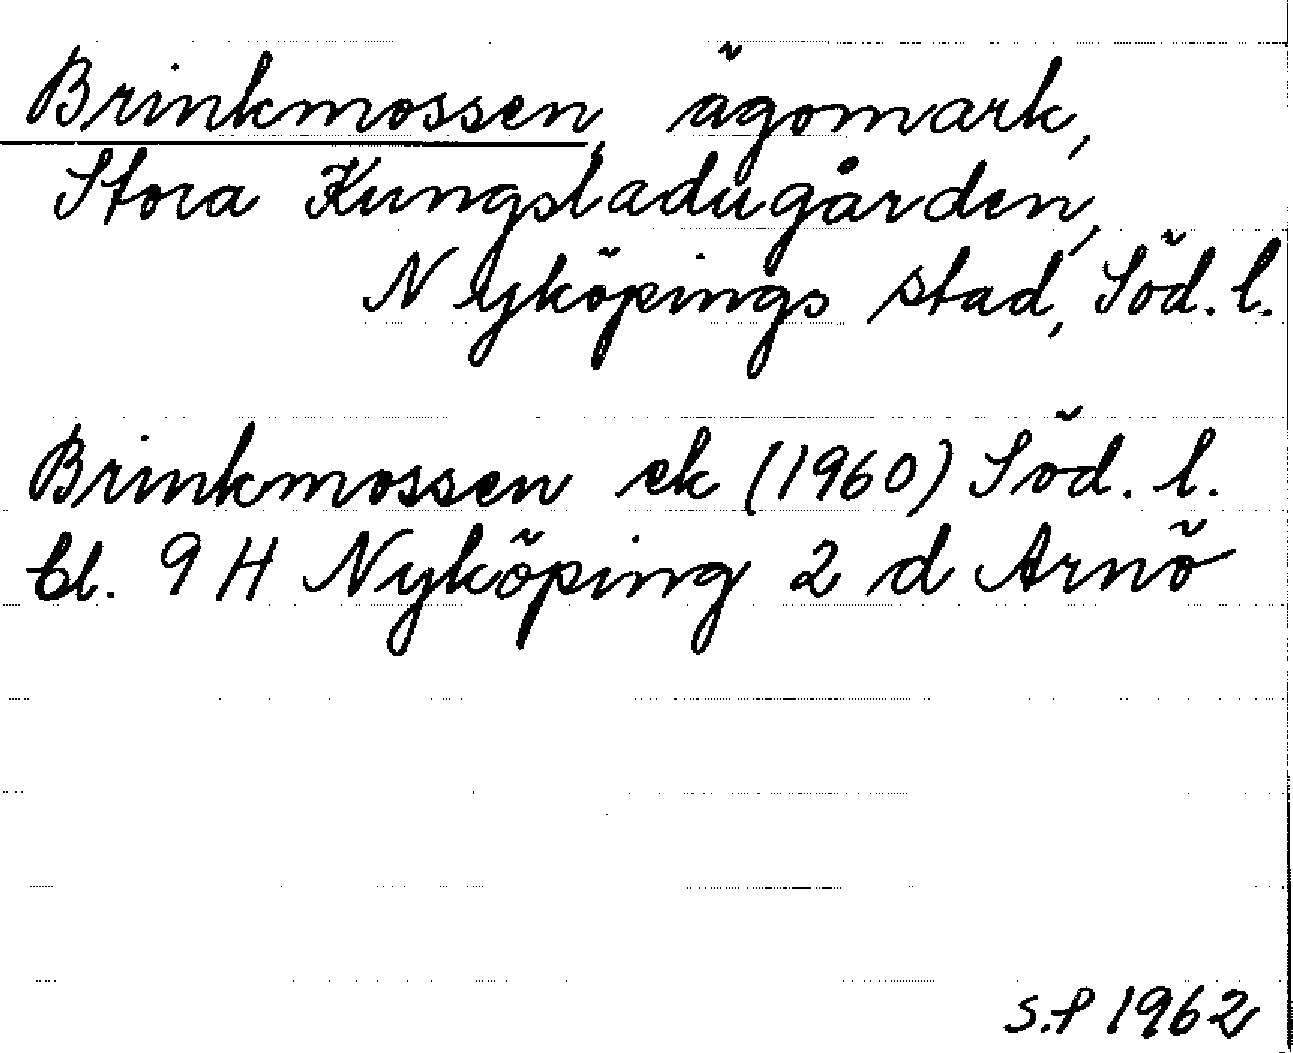 Brinkmossen, ägomark,
Stora Kungsladugården,
Nyköpings stad, Söd. l.
Brinkmossen ek (1960) Söd. l.
bl. 9 H Nyköping 2 d Arnö
S.P 1962